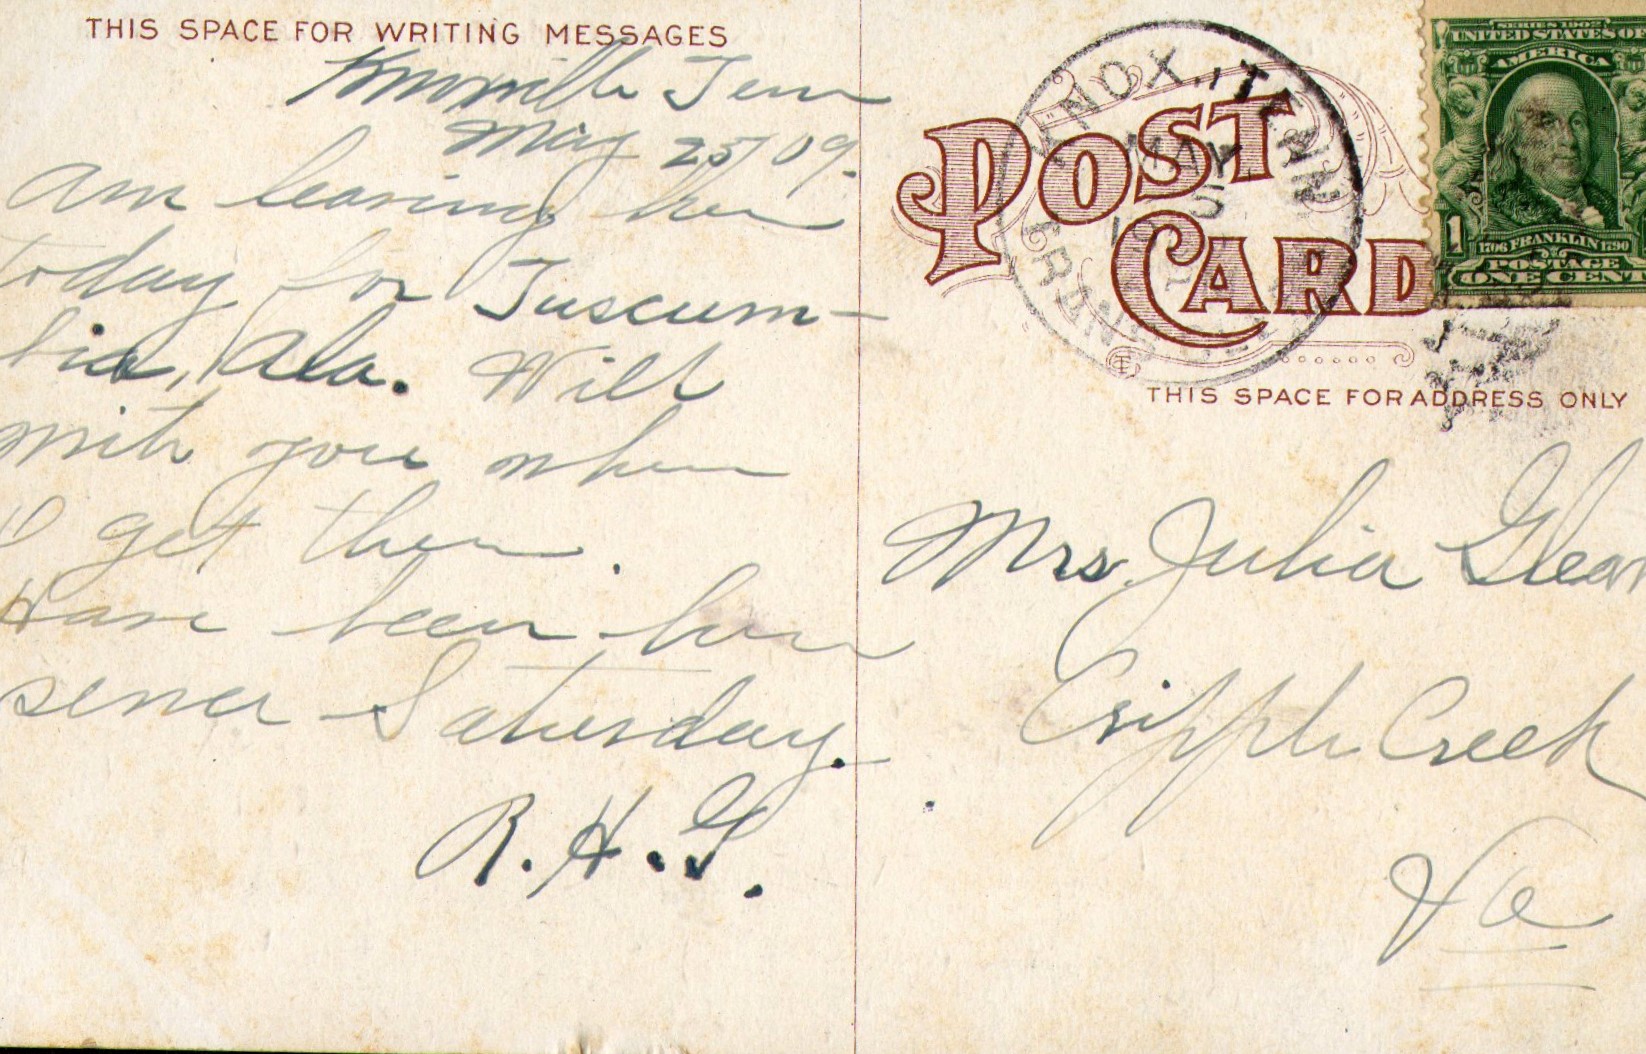 THIS SPACE FOR WRITING MESSAGES
Knoxville Tenn
May 25/09.
Am leaving here
today for Tuscum-
bia, Ala. Will
write you when
I get there.
Have been here
since Saturday.
R. H. G.
POST
CARD
KNOX., TENN
MAY
SERIES 1902
UNITED STATES OF
AMERICA
1
1706 FRANKLIN 1790
POSTAGE
ONE CENT
THIS SPACE FOR ADDRESS ONLY
Mrs. Julia
Cripple Creek
Va